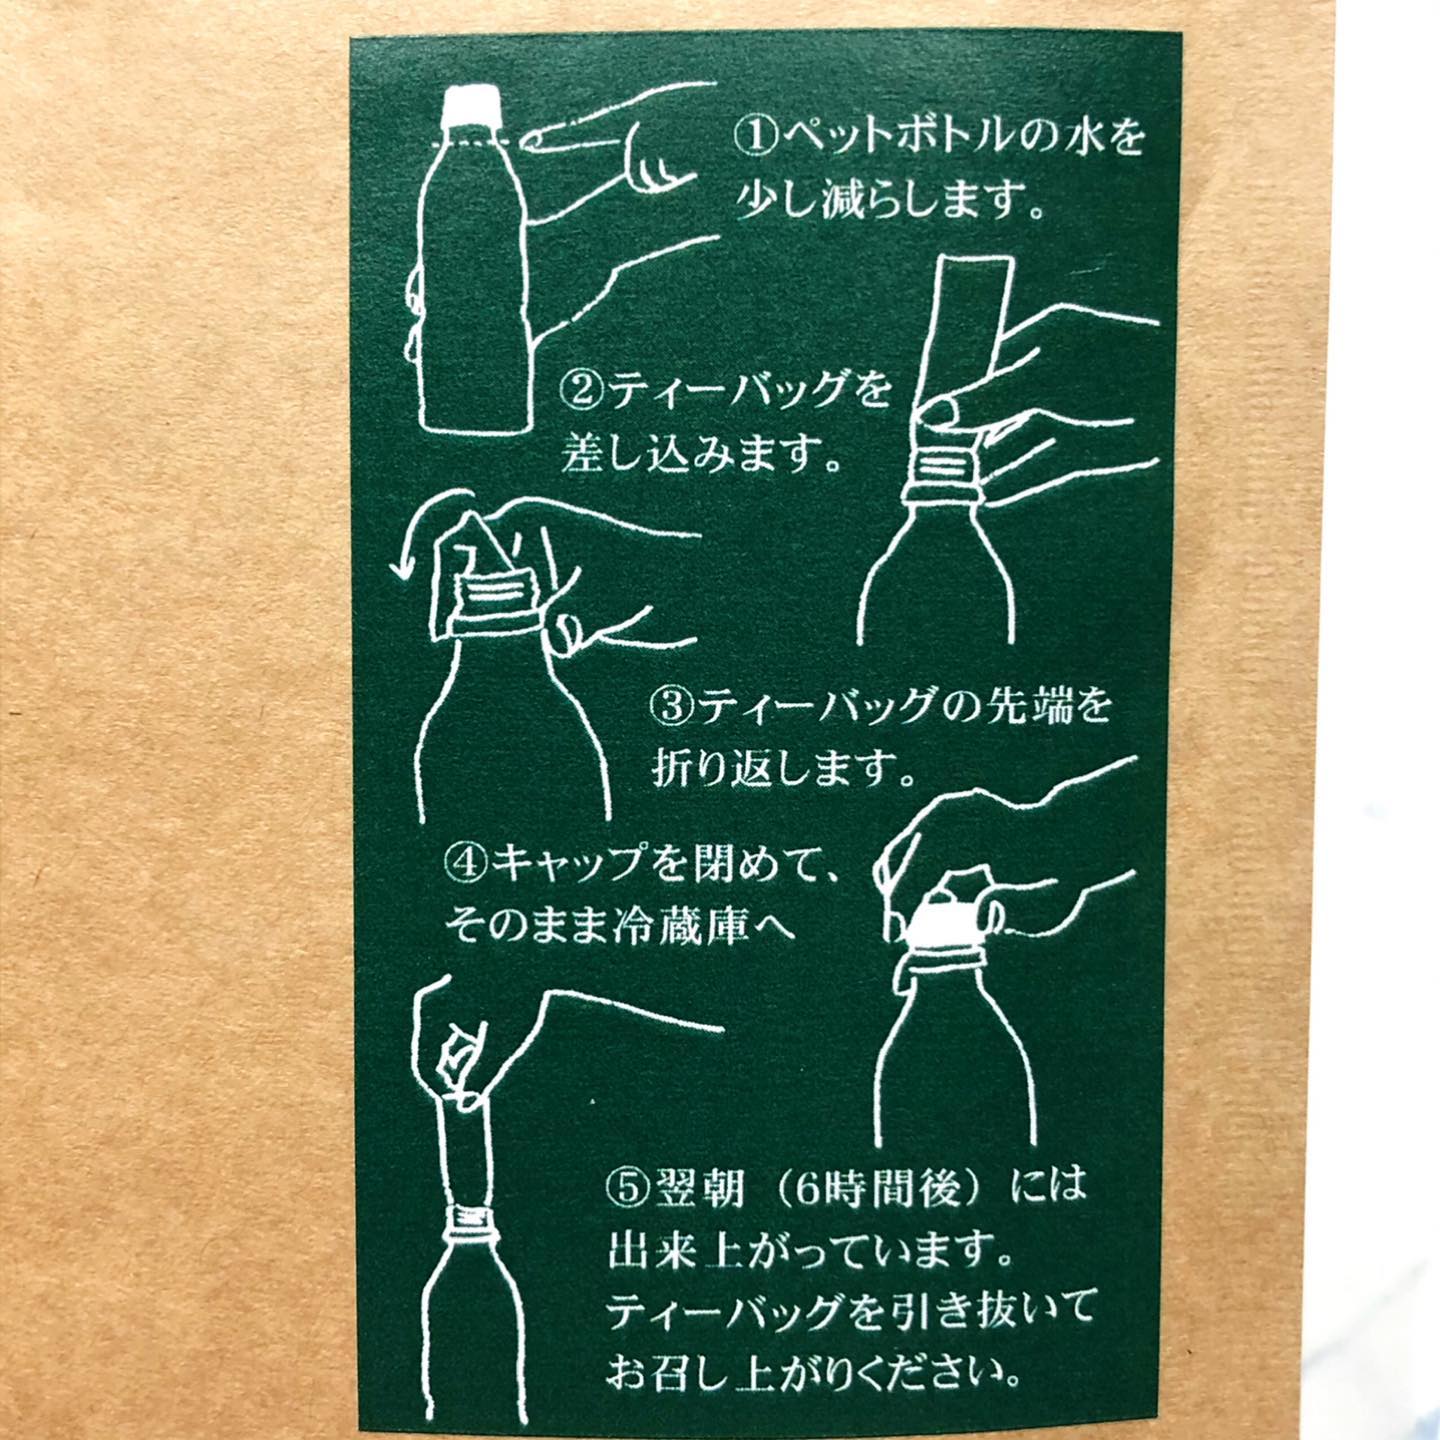 ①ペットボトルの水を
少し減らします。
②ティーバッグを
差し込みます。
③ティーバッグの先端を
折り返します。
④キャップを閉めて、
そのまま冷蔵庫へ
⑤翌朝（6時間後）には
出来上がっています。
ティーバッグを引き抜いて
お召し上がりください。